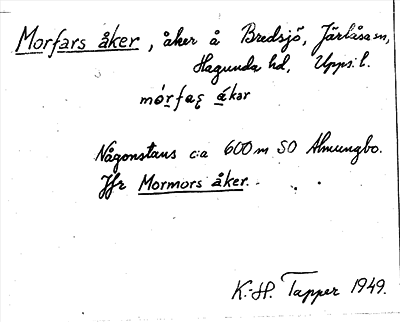 Morfars åker, åker å Bredsjö, Järlåsa sn,
Hagunda hd, Upps. l.
mórfaʂ åkər
Någonstans c:a 600 m SO Almungbo.
Jfr Mormors åker.
K.-H. Tapper 1949.